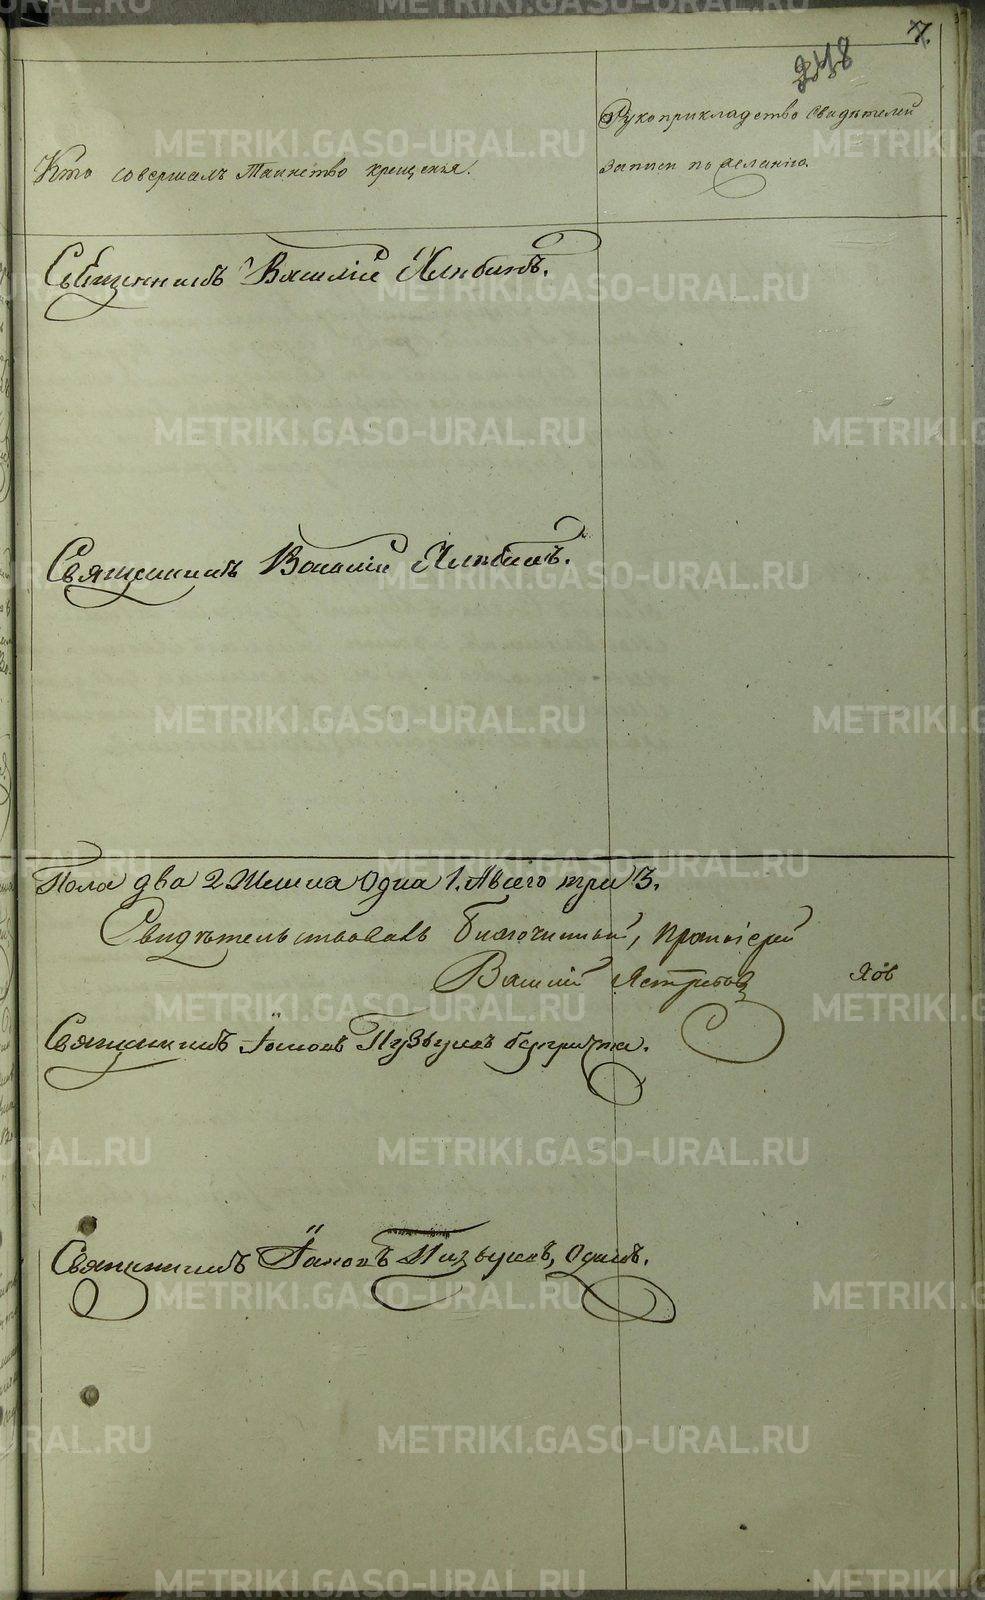 7.
248
Кто совершалъ Таинство крещенья.
Рукоприкладство Свидѣтелей
Записи по желанію.
Священникъ Василій Хлыбинъ.
Священникъ Василій Хлыбинъ.
Пола два 2. Женска Одна 1. А всего три 3.
Свидѣтельствовалъ Благочинный, Протоіерей
Василій Ястребовъ
Священникъ Іаковъ
Священникъ Іаковъ
METRIKI.GASO-URAL.RU